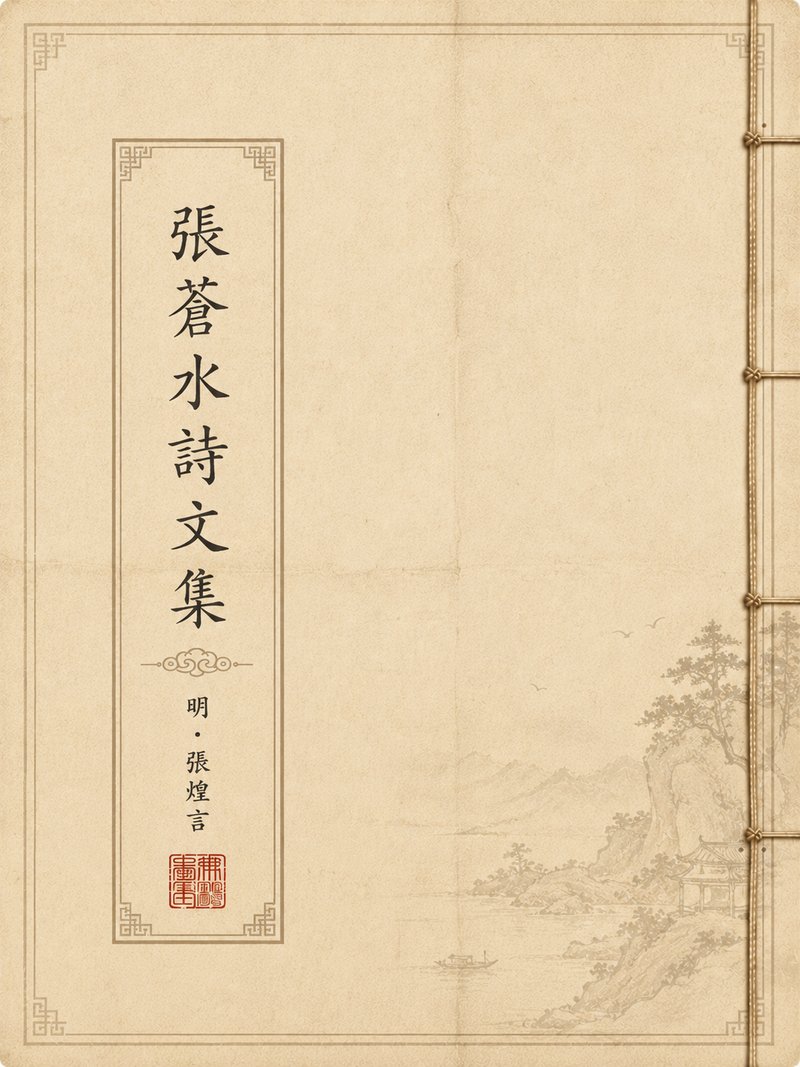 張蒼水詩文集
明·張煌言